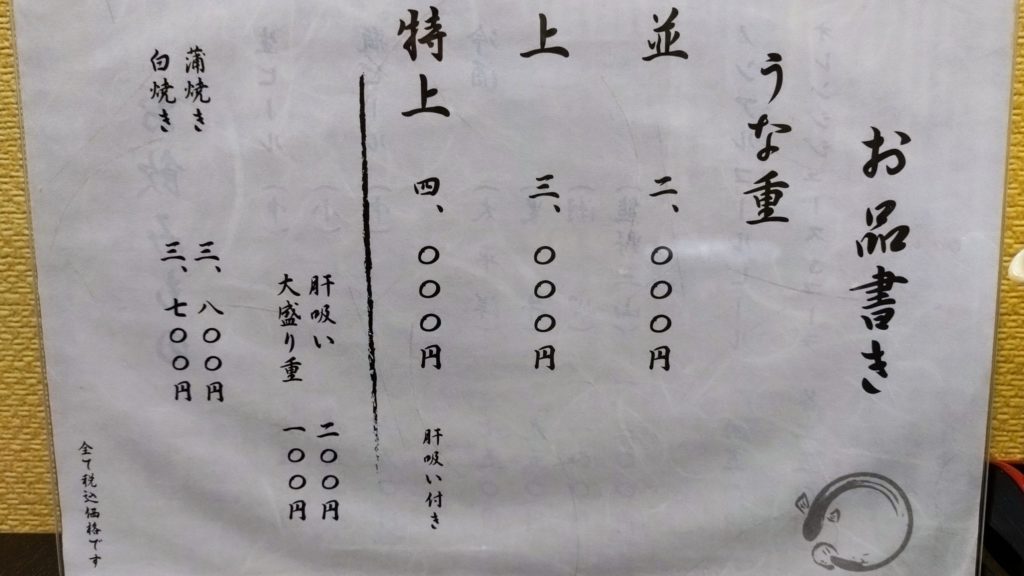 お品書き
うな重
並 二、〇〇〇円
上 三、〇〇〇円
特上 四、〇〇〇円 肝吸い付き
肝吸い 二〇〇円
大盛り重 一〇〇円
蒲焼き 三、八〇〇円
白焼き 三、七〇〇円
全て税込価格です